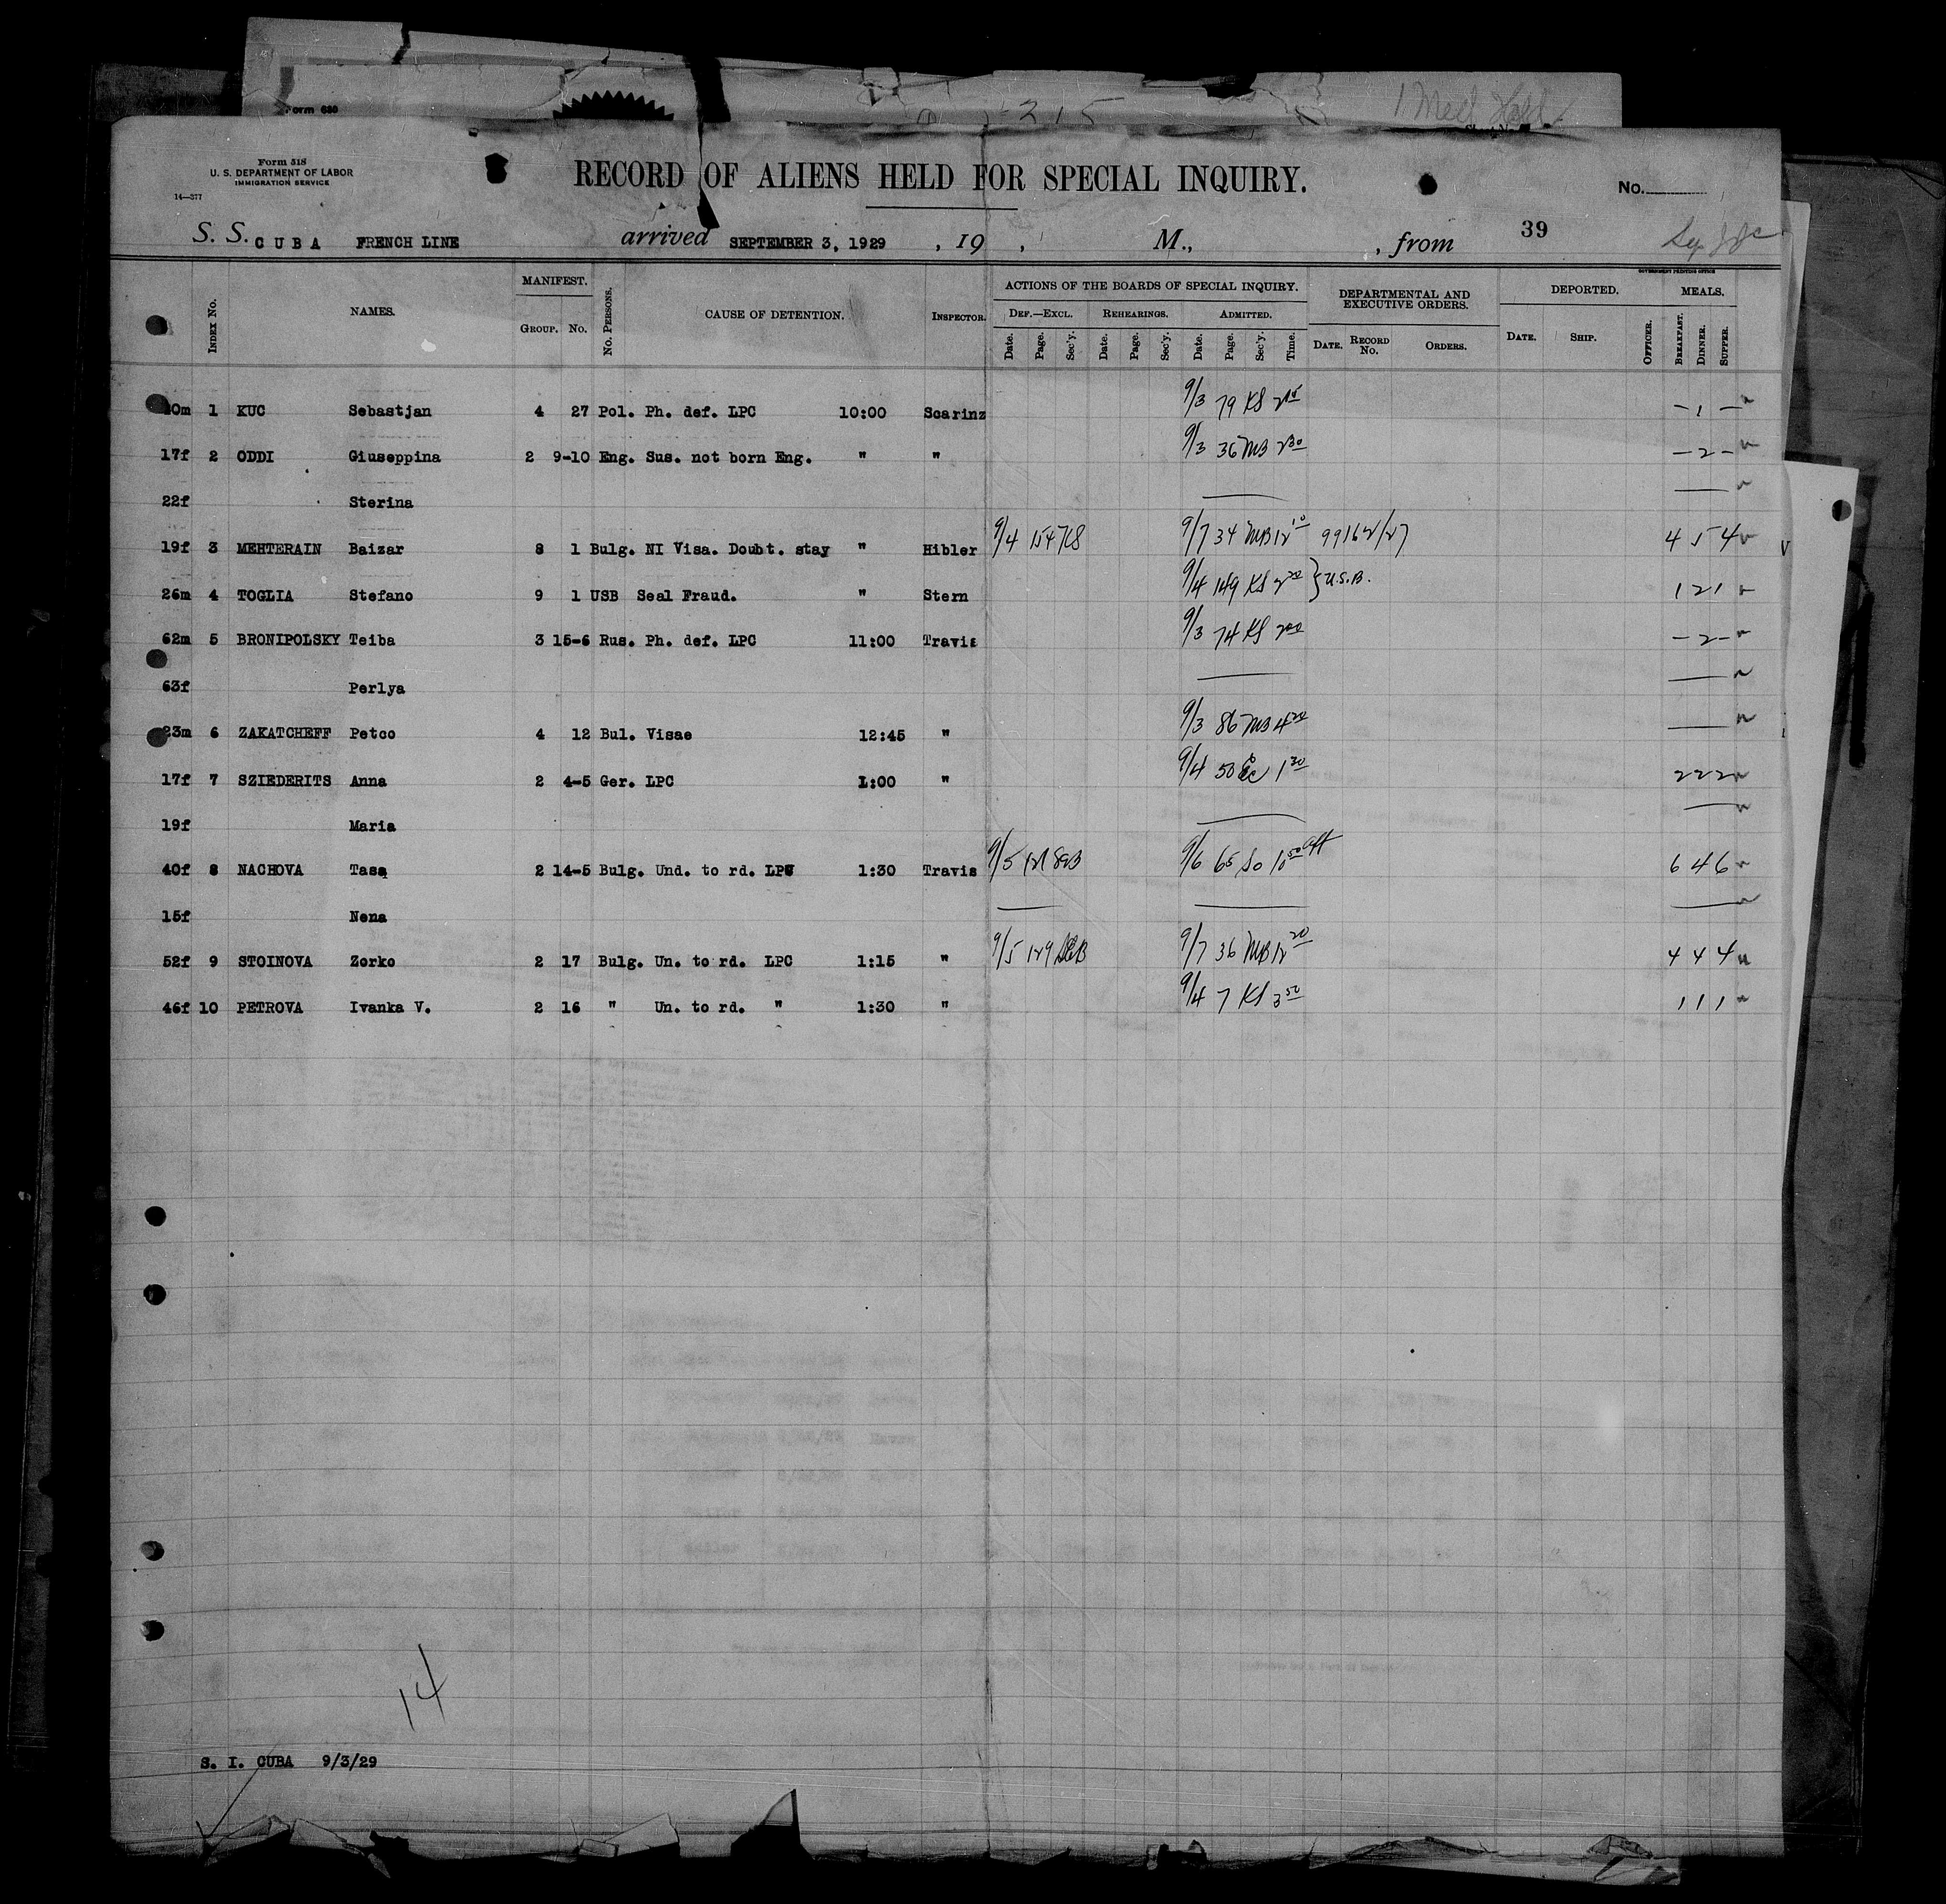 Form 630
215
1 Med Hold
Form 518
U. S. DEPARTMENT OF LABOR
IMMIGRATION SERVICE
14—377
RECORD OF ALIENS HELD FOR SPECIAL INQUIRY.
No.
S. S. CUBA FRENCH LINE arrived SEPTEMBER 3, 1929 , 19 , M., , from 39
GOVERNMENT PRINTING OFFICE
INDEX No. NAMES. MANIFEST. No. PERSONS. CAUSE OF DETENTION. INSPECTOR. ACTIONS OF THE BOARDS OF SPECIAL INQUIRY. DEPARTMENTAL AND EXECUTIVE ORDERS. DEPORTED. MEALS.
GROUP. No. DEF.—EXCL. REHEARINGS. ADMITTED.
Date. Page. Sec'y. Date. Page. Sec'y. Date. Page. Sec'y. Time. DATE. RECORD No. ORDERS. DATE. SHIP. OFFICER. BREAKFAST. DINNER. SUPPER.
0m 1 KUC Sebastjan 4 27 Pol. Ph. def. LPC 10:00 Scarinz 9/3 79 KS 2 15 — 1 —
17f 2 ODDI Giuseppina 2 9-10 Eng. Sus. not born Eng. " " 9/3 36 MB 2 30 — 2 —
22f Sterina
19f 3 MEHTERAIN Baizar 8 1 Bulg. NI Visa. Doubt. stay " Hibler 9/4 154 KS 9/7 34 MB 12 10 99162/27 4 5 4
26m 4 TOGLIA Stefano 9 1 USB Seal Fraud. " Stern 9/4 149 KS 2 20 } U.S.B. 1 2 1
62m 5 BRONIPOLSKY Teiba 3 15-6 Rus. Ph. def. LPC 11:00 Travis 9/3 74 KS 2 00 — 2 —
63f Perlya
23m 6 ZAKATCHEFF Petco 4 12 Bul. Visae 12:45 " 9/3 86 MB 4 20
17f 7 SZIEDERITS Anna 2 4-5 Ger. LPC 1:00 " 9/4 50 EC 1 30 2 2 2
19f Maria
40f 8 NACHOVA Tasa 2 14-5 Bulg. Und. to rd. LPC 1:30 Travis 9/5 9/6 65 10 50 6 4 6
15f Nena
52f 9 STOINOVA Zorko 2 17 Bulg. Un. to rd. LPC 1:15 " 9/5 129 9/7 36 MB 12 20 4 4 4
46f 10 PETROVA Ivanka V. 2 16 " Un. to rd. " 1:30 " 9/4 7 KS 3 50 1 1 1
14
S. I. CUBA 9/3/29